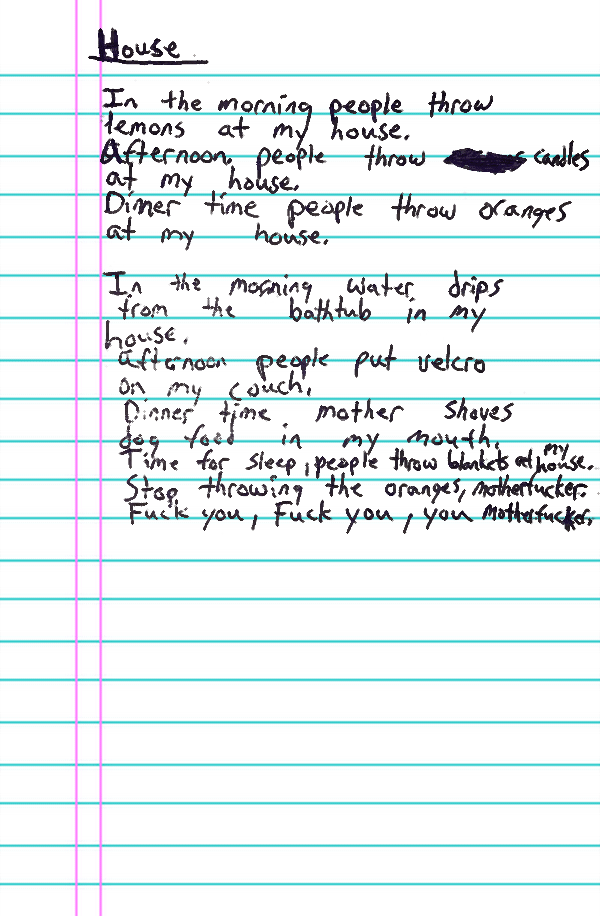 House
In the morning people throw
lemons at my house.
Afternoon, people throw candles
at my house.
Dinner time people throw oranges
at my house.
In the morning water drips
from the bathtub in my
house.
afternoon people put velcro
on my couch.
Dinner time mother shoves
dog food in my mouth.
Time for sleep, people throw blankets at my house.
Stop throwing the oranges, motherfucker.
Fuck you, Fuck you, you Motherfucker.